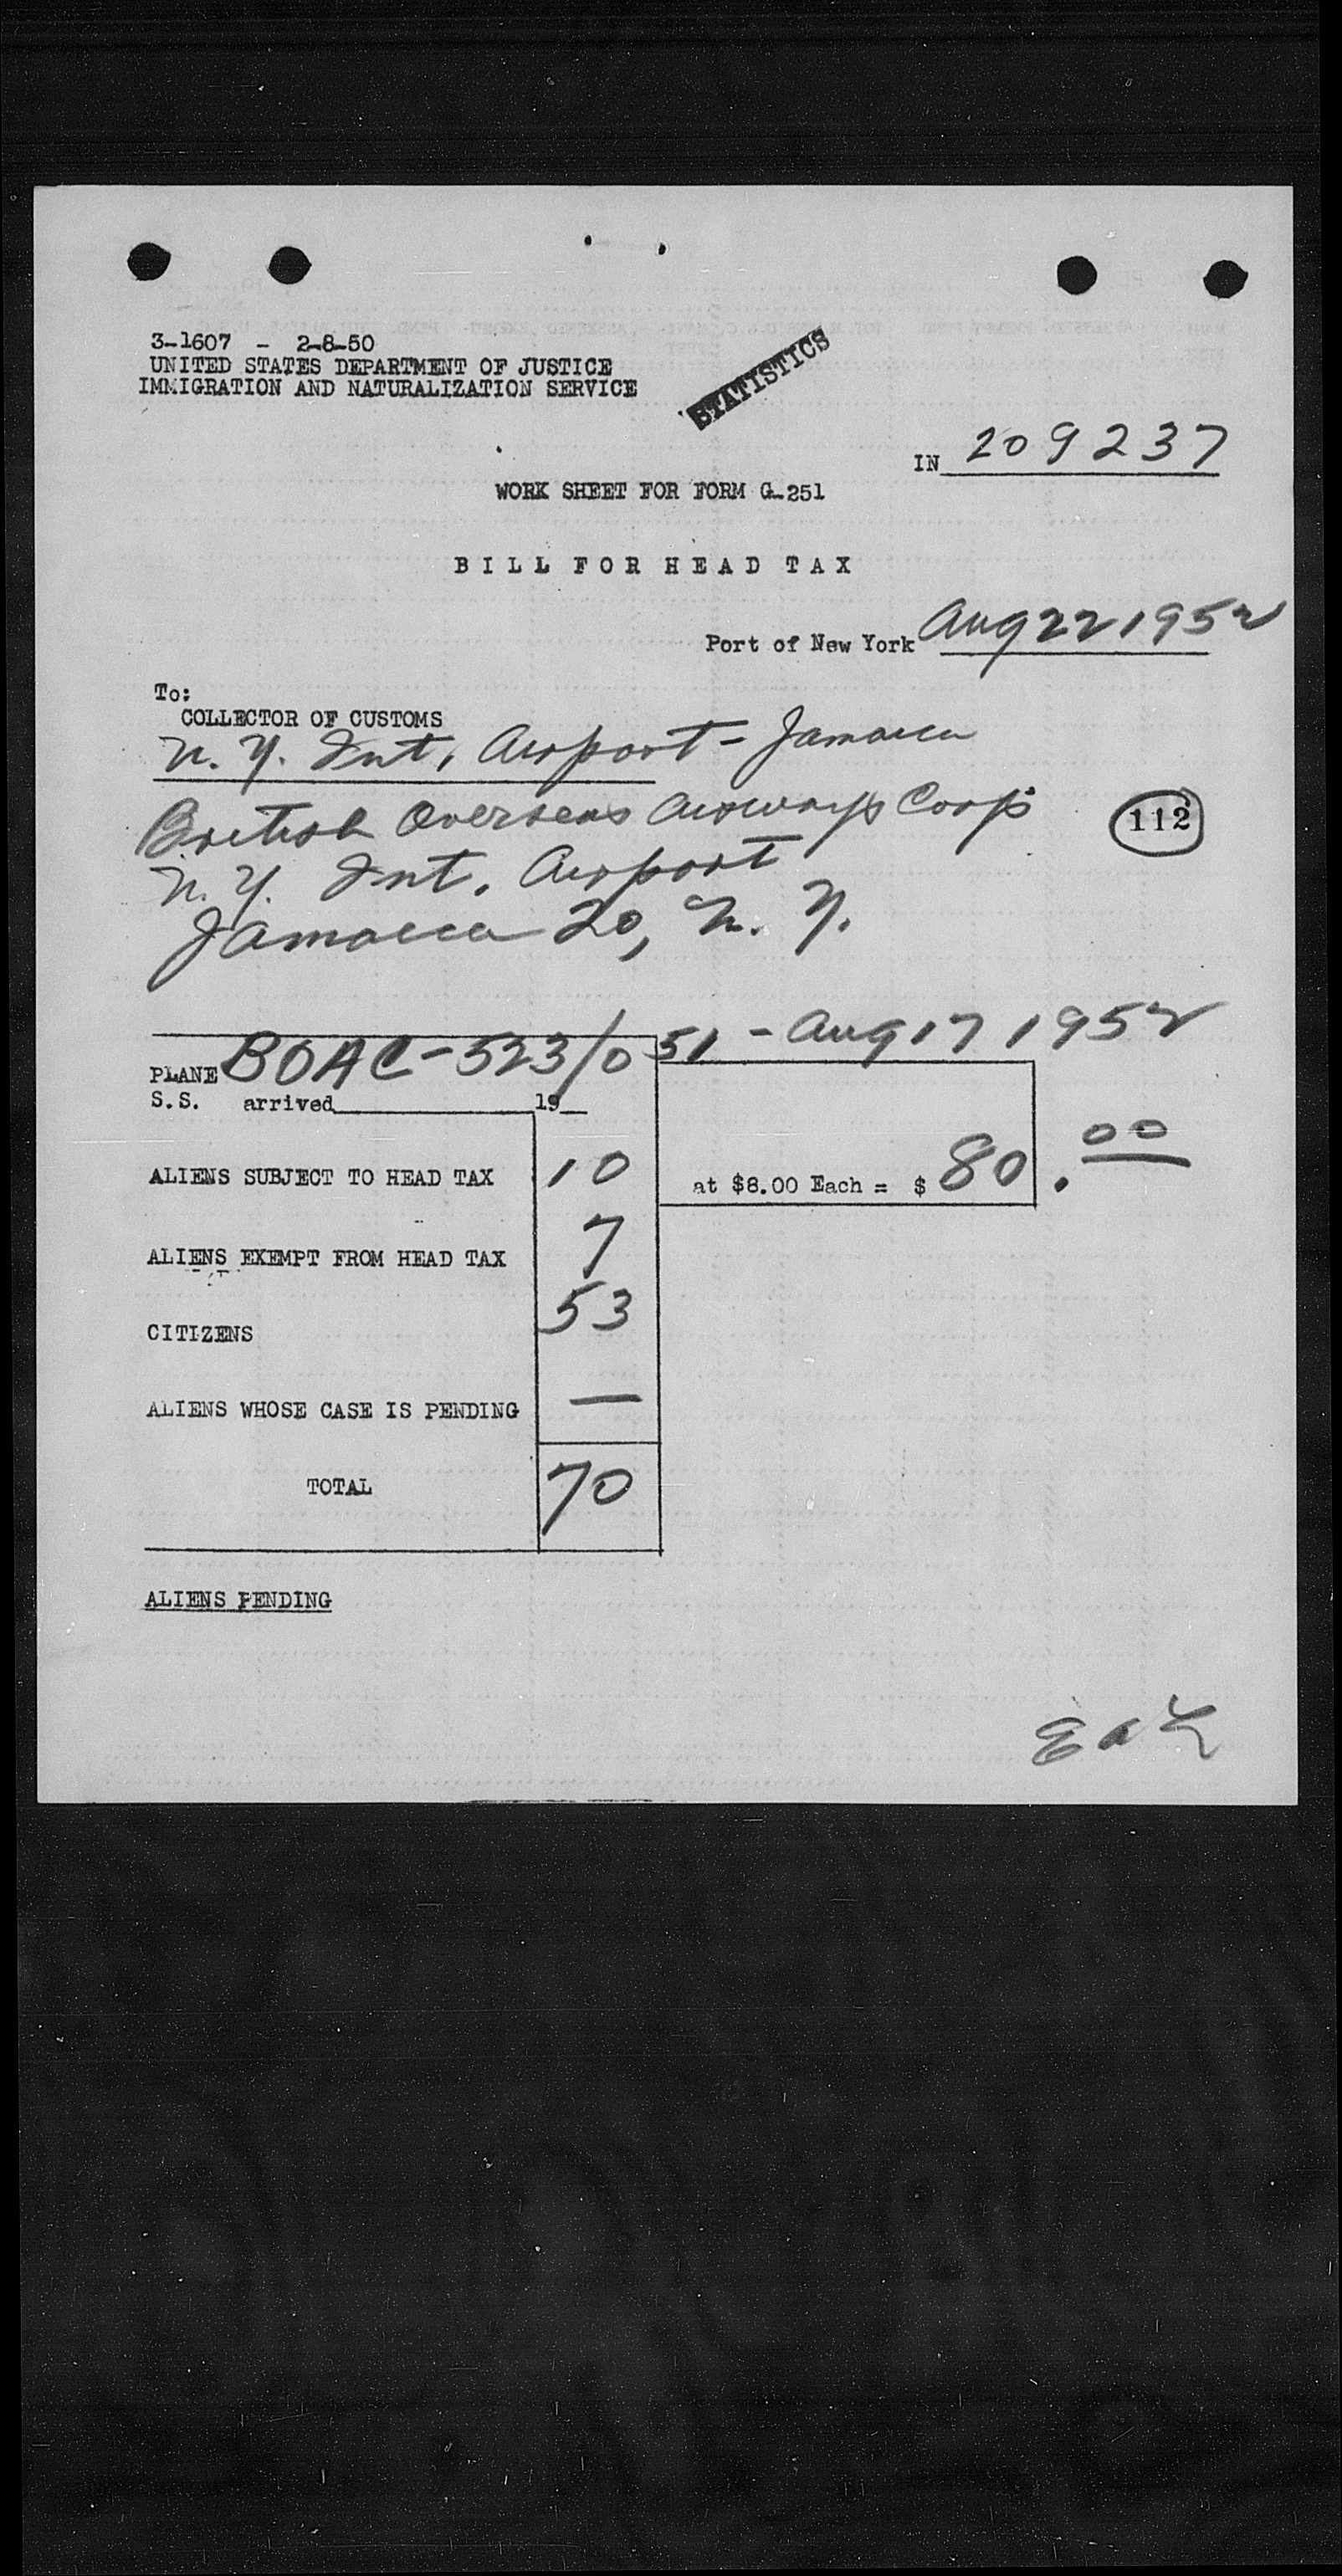 3-1607 - 2-8-50
UNITED STATES DEPARTMENT OF JUSTICE
IMMIGRATION AND NATURALIZATION SERVICE
STATISTICS
IN 209237
WORK SHEET FOR FORM G-251
BILL FOR HEAD TAX
Port of New York Aug 22 1952
To:
COLLECTOR OF CUSTOMS
N. Y. Int. Airport - Jamaica
British Overseas Airways Corp
112
N. Y. Int. Airport
Jamaica 20, N. Y.
PLANE BOAC-523/051 - Aug 17 1952
S.S. arrived 19
ALIENS SUBJECT TO HEAD TAX 10 at $8.00 Each = $ 80.00
ALIENS EXEMPT FROM HEAD TAX 7
CITIZENS 53
ALIENS WHOSE CASE IS PENDING —
TOTAL 70
ALIENS PENDING